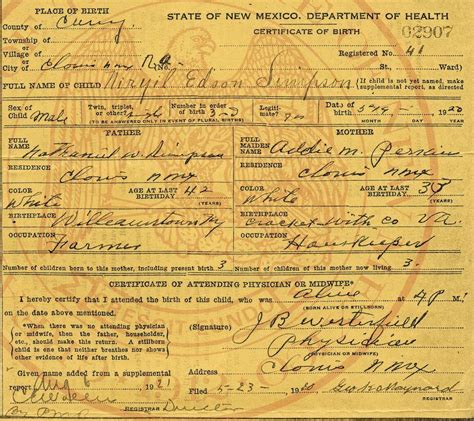 PLACE OF BIRTH
STATE OF NEW MEXICO, DEPARTMENT OF HEALTH
County of Curry
CERTIFICATE OF BIRTH
02907
Township of
or
Village of
Registered No. 41
or
City of Clovis nmx No.
St., Ward)
FULL NAME OF CHILD Virgil Edson Simpson
If child is not yet named, make supplemental report, as directed
Sex of Child Male
Twin, triplet, or other?
Number in order of birth
(TO BE ANSWERED ONLY IN EVENT OF PLURAL BIRTHS)
Legitimate? Yes
DATE OF BIRTH 5-19- 1920
FATHER
MOTHER
FULL NAME Nathaniel W Simpson
FULL MAIDEN NAME Addie M.
RESIDENCE Clovis nmx
RESIDENCE Clovis nmx
COLOR White
AGE AT LAST BIRTHDAY 42 (YEARS)
COLOR White
AGE AT LAST BIRTHDAY (YEARS)
BIRTHPLACE Ky
BIRTHPLACE
OCCUPATION Farmer
OCCUPATION Housekeeper
Number of children born to this mother, including present birth 3
Number of children of this mother now living 3.
CERTIFICATE OF ATTENDING PHYSICIAN OR MIDWIFE*
I hereby certify that I attended the birth of this child, who was Alive at 4 P M.
(BORN ALIVE OR STILLBORN)
on the date above mentioned.
*When there was no attending physician or midwife, then the father, householder, etc., should make this return. A stillborn child is one that neither breathes nor shows other evidence of life after birth.
(Signature) J B Westerfield
Physician
(PHYSICIAN OR MIDWIFE)
Clovis nmx
Given name added from a supplemental
report Aug 6 1921
Filed 5-23- 1920 Geo Maynard
REGISTRAR
REGISTRAR